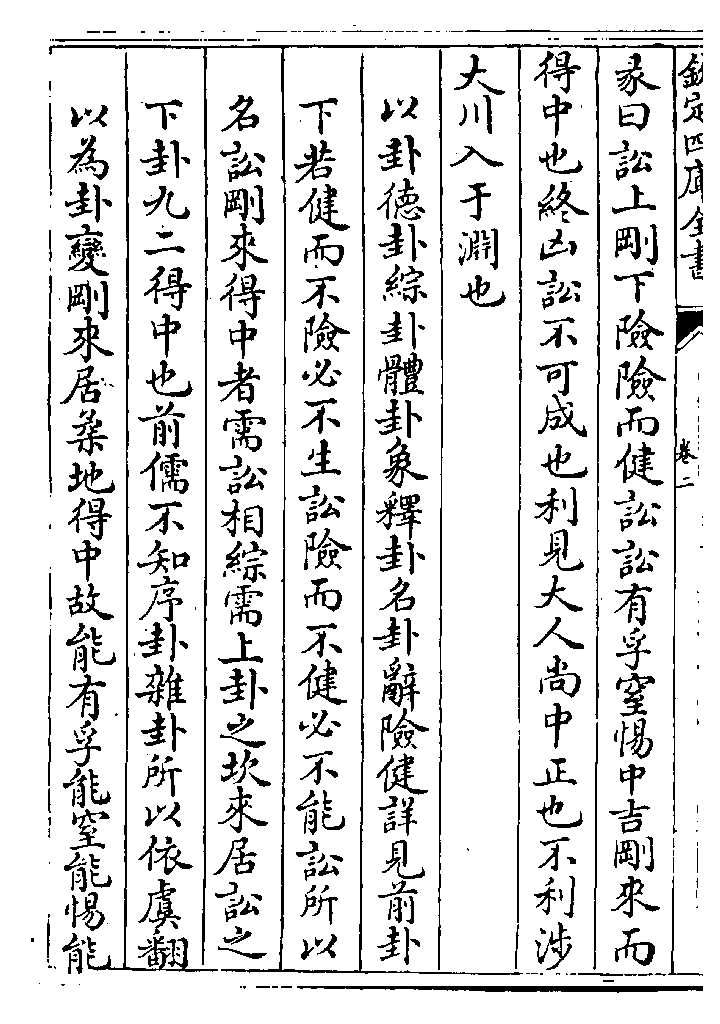 欽定四庫全書
卷二
彖曰訟上剛下險險而健訟訟有孚窒惕中吉剛來而
得中也終凶訟不可成也利見大人尚中正也不利涉
大川入于淵也
以卦德卦綜卦體卦象釋卦名卦辭險健詳見前卦
下若健而不險必不生訟險而不健必不能訟所以
名訟剛來得中者需訟相綜需上卦之坎來居訟之
下卦九二得中也前儒不知序卦雜卦所以依虞翻
以為卦變剛來居柔地得中故能有孚能窒能惕能